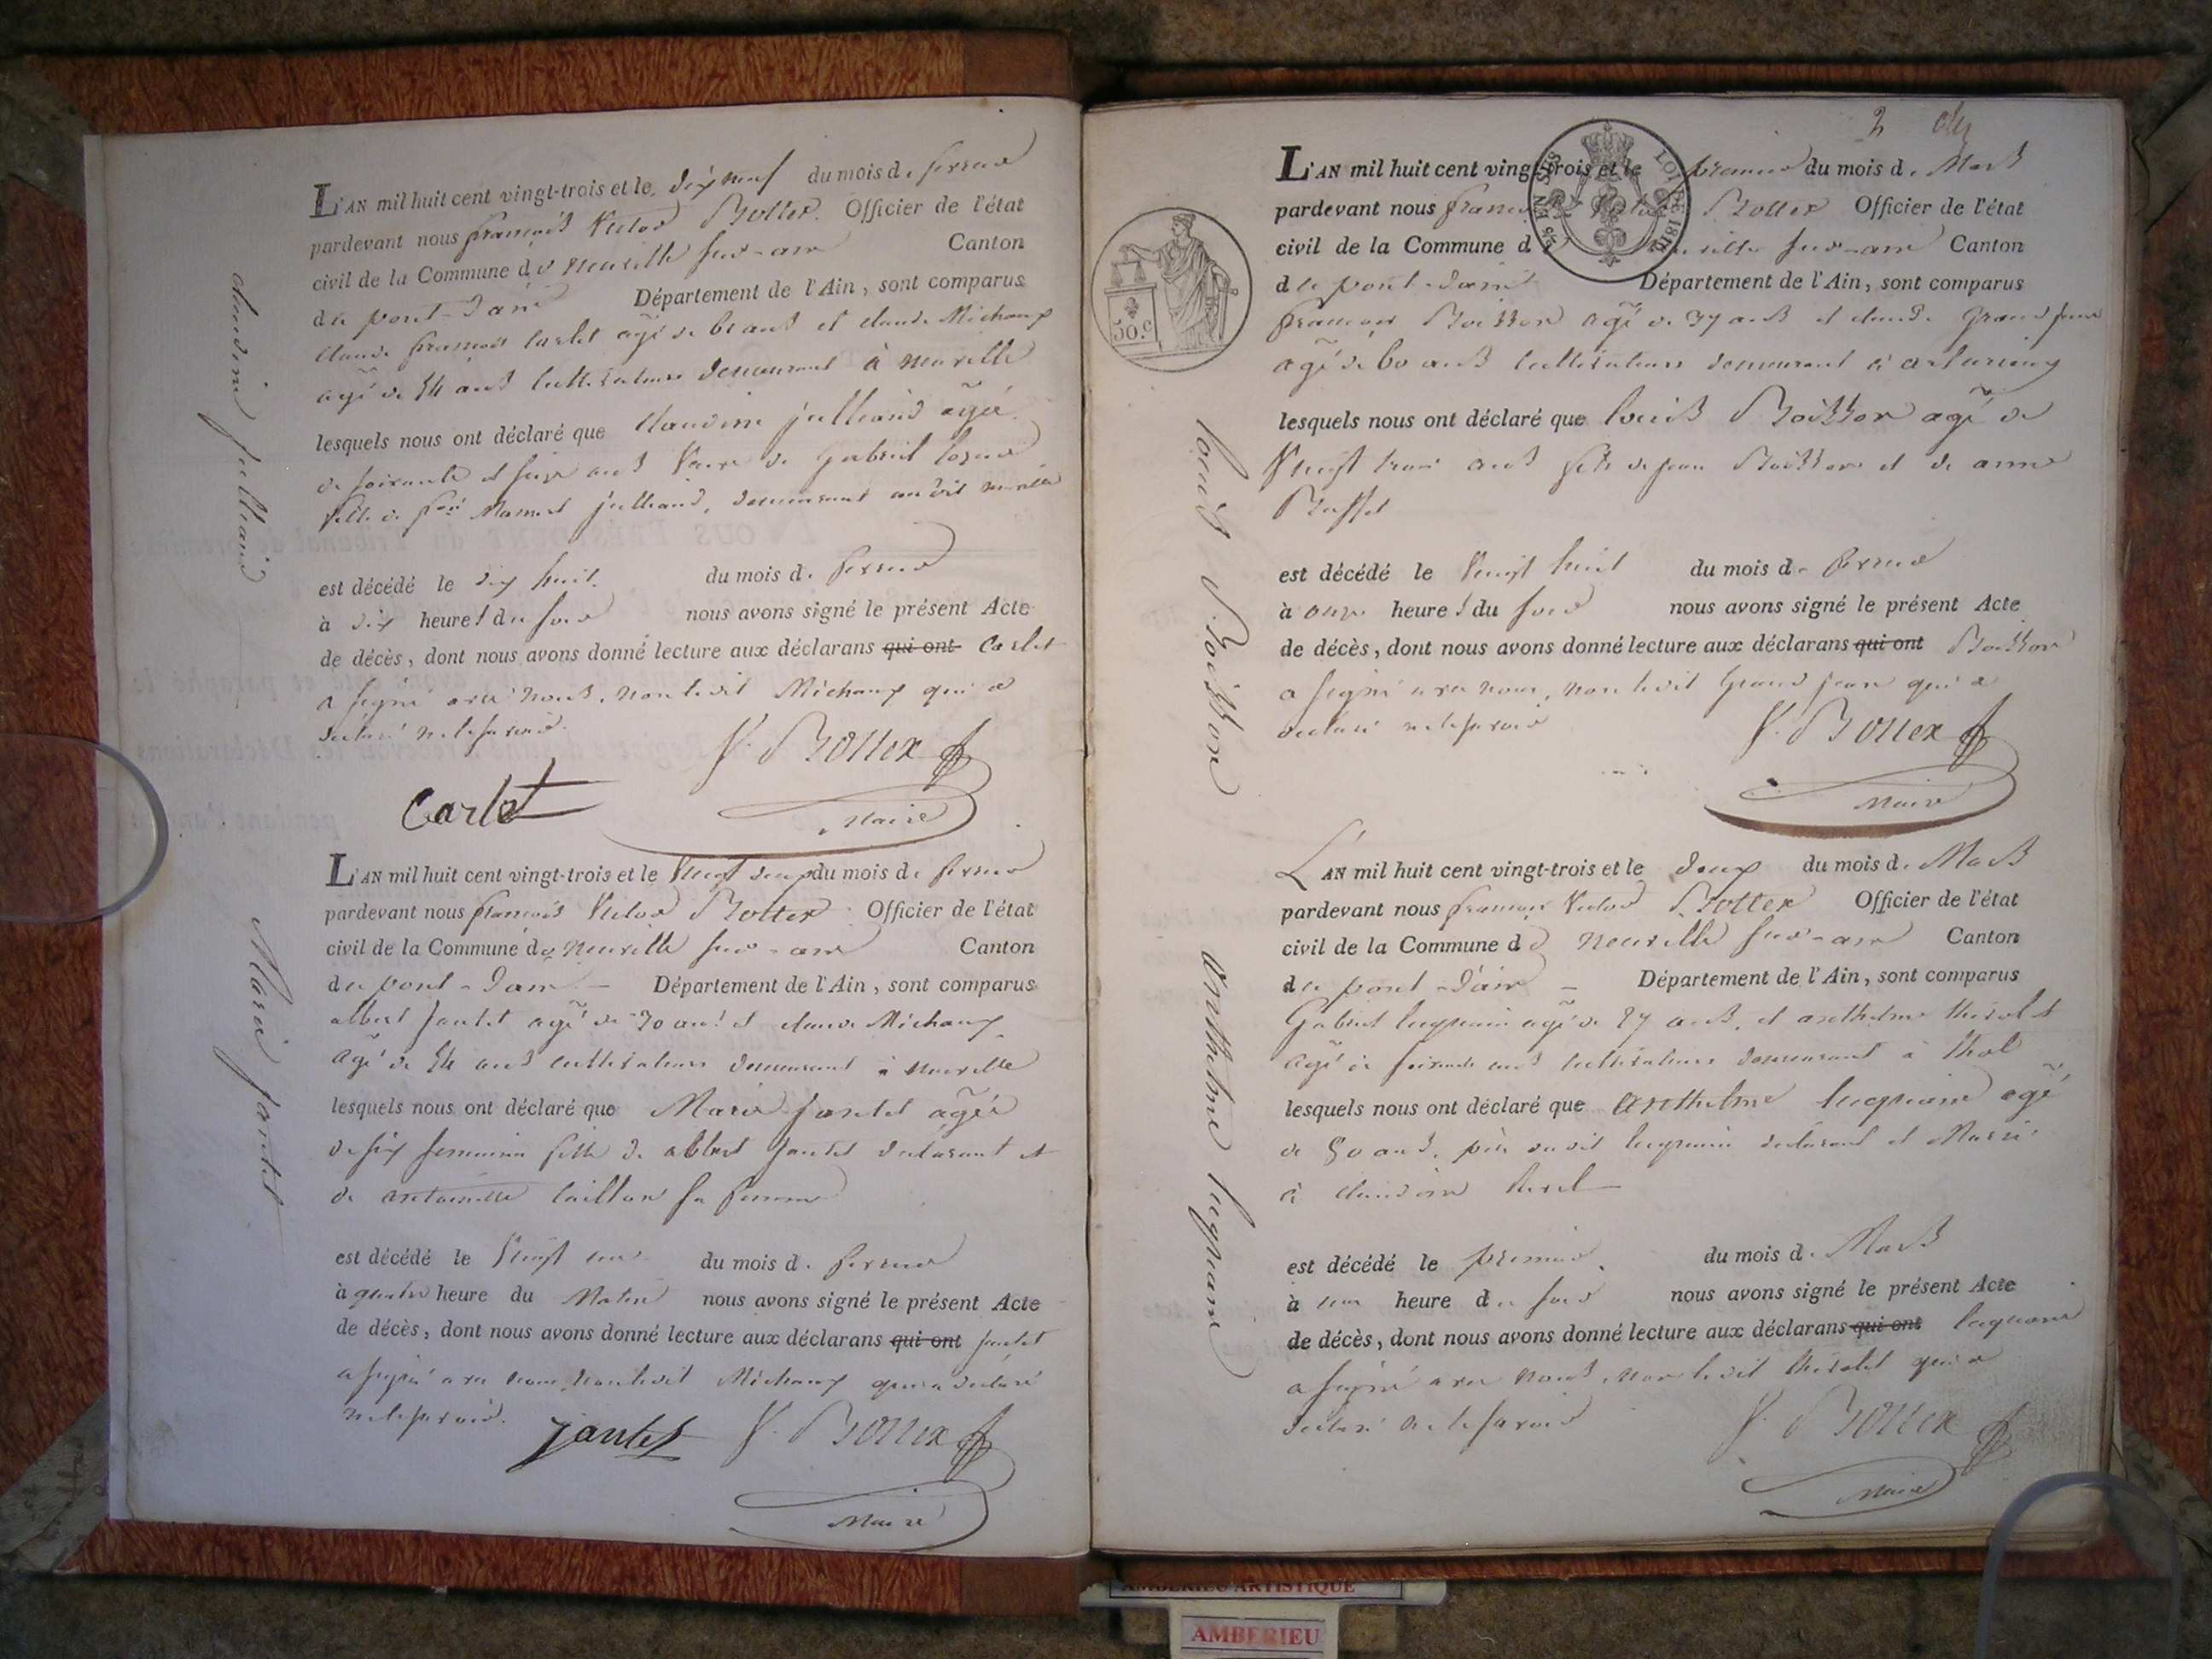 L'AN mil huit cent vingt-trois et le dix neuf du mois de fevrier
pardevant nous françois Victor Bottex Officier de l'état
civil de la Commune de neuville sur-ain Canton
de pont-d'ain Département de l'Ain, sont comparus
claude françois carlet agé de ans et claude Michaux
agé de 54 ans cultivateurs demeurant à neuville
lesquels nous ont déclaré que claudine julliand agée
de soixante et seize ans Veuve de gabriel
fille de feu julliand, demeurant audit neuville
est décédé le dix huit du mois de fevrier
à dix heures du soir nous avons signé le présent Acte
de décès, dont nous avons donné lecture aux déclarans qui ont Carlet
a signé avec nous, non ledit Michaux qui a
declaré ne le savoir.
V. Bottex
Carlet
Maire
claudine julliand
L'AN mil huit cent vingt-trois et le Vingt deux du mois de fevrier
pardevant nous françois Victor Bottex Officier de l'état
civil de la Commune de neuville sur-ain Canton
de pont-d'ain Département de l'Ain, sont comparus
albert jantet agé de 30 ans et claude Michaux
agé de 54 ans cultivateurs demeurant à neuville
lesquels nous ont déclaré que Marie jantet agée
de six semaines fille de albert jantet declarant et
de antoinette sa femme
est décédé le Vingt un du mois de fevrier
à quatre heure du Matin nous avons signé le présent Acte
de décès, dont nous avons donné lecture aux déclarans qui ont jantet
a signé avec nous, non ledit Michaux qui a declaré
ne le savoir.
jantet V. Bottex
Maire
Marie jantet
2
L'AN mil huit cent vingt-trois et le premier du mois de Mars
pardevant nous françois Victor Bottex Officier de l'état
civil de la Commune de neuville sur-ain Canton
de pont-d'ain Département de l'Ain, sont comparus
françois Boisson agé de 37 ans et claude grand jean
agé de 60 ans cultivateurs demeurant à
lesquels nous ont déclaré que louis Boisson agé de
Vingt trois ans fils de jean Boisson et de anne
Buffet
est décédé le Vingt huit du mois de fevrier
à onze heures du soir nous avons signé le présent Acte
de décès, dont nous avons donné lecture aux déclarans qui ont Boisson
a signé avec nous, non ledit Grand jean qui a
declaré ne le savoir
V. Bottex
Maire
louis Boisson
50.c
L'AN mil huit cent vingt-trois et le deux du mois de Mars
pardevant nous françois Victor Bottex Officier de l'état
civil de la Commune de neuville sur-ain Canton
de pont-d'ain Département de l'Ain, sont comparus
Gabriel luquain agé de ans, et anthelme
agé de soixante ans cultivateurs demeurant à thol
lesquels nous ont déclaré que anthelme luquain agé
de 80 ans, père dudit luquain declarant et Marié
à claudine
est décédé le premier du mois de Mars
à une heure du soir nous avons signé le présent Acte
de décès, dont nous avons donné lecture aux déclarans qui ont luquain
a signé avec nous, non ledit qui a
declaré ne le savoir
V. Bottex
Maire
anthelme luquain
AMBERIEU ARTISTIQUE
AMBERIEU